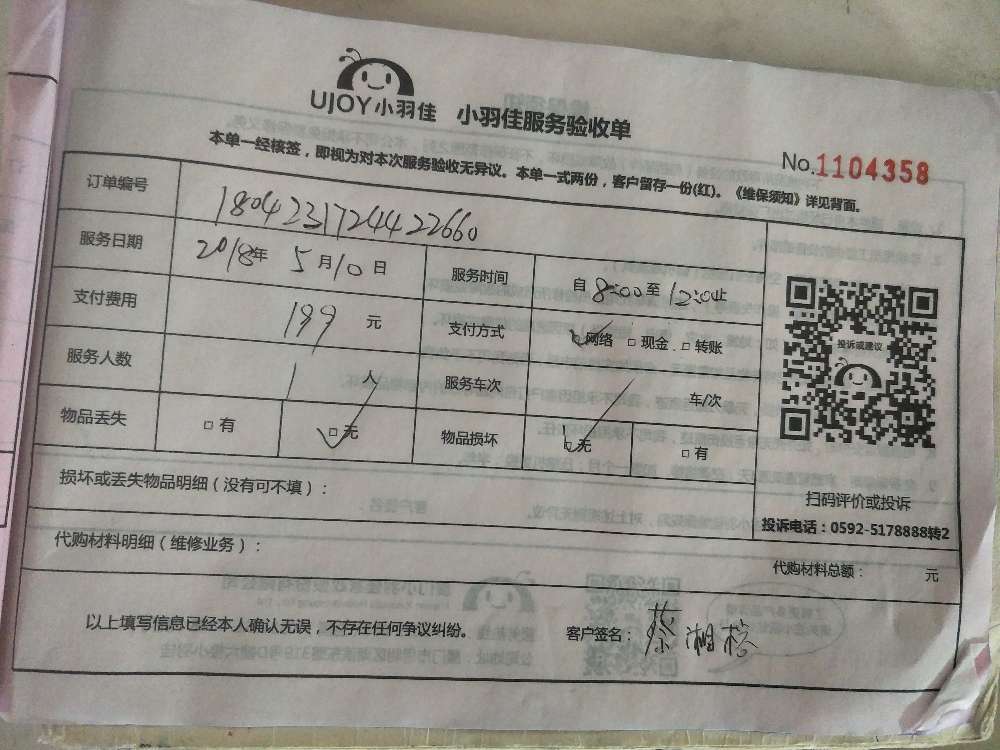 UJOY小羽佳 小羽佳服务验收单
No.1104358
本单一经核签，即视为对本次服务验收无异议。本单一式两份，客户留存一份(红)。《维保须知》详见背面。
订单编号 180423172442660
服务日期 2018年 5月10日 服务时间 自8:00至12:0止
支付费用 199 元 支付方式 □网络 □现金 □转账
投诉或建议
服务人数 1 人 服务车次 / 车/次
物品丢失 □有 □无 物品损坏 □无 □有
损坏或丢失物品明细（没有可不填）：
扫码评价或投诉
投诉电话：0592-5178888转2
代购材料明细（维修业务）：
代购材料总额： 元
以上填写信息已经本人确认无误，不存在任何争议纠纷。 客户签名： 蔡湘